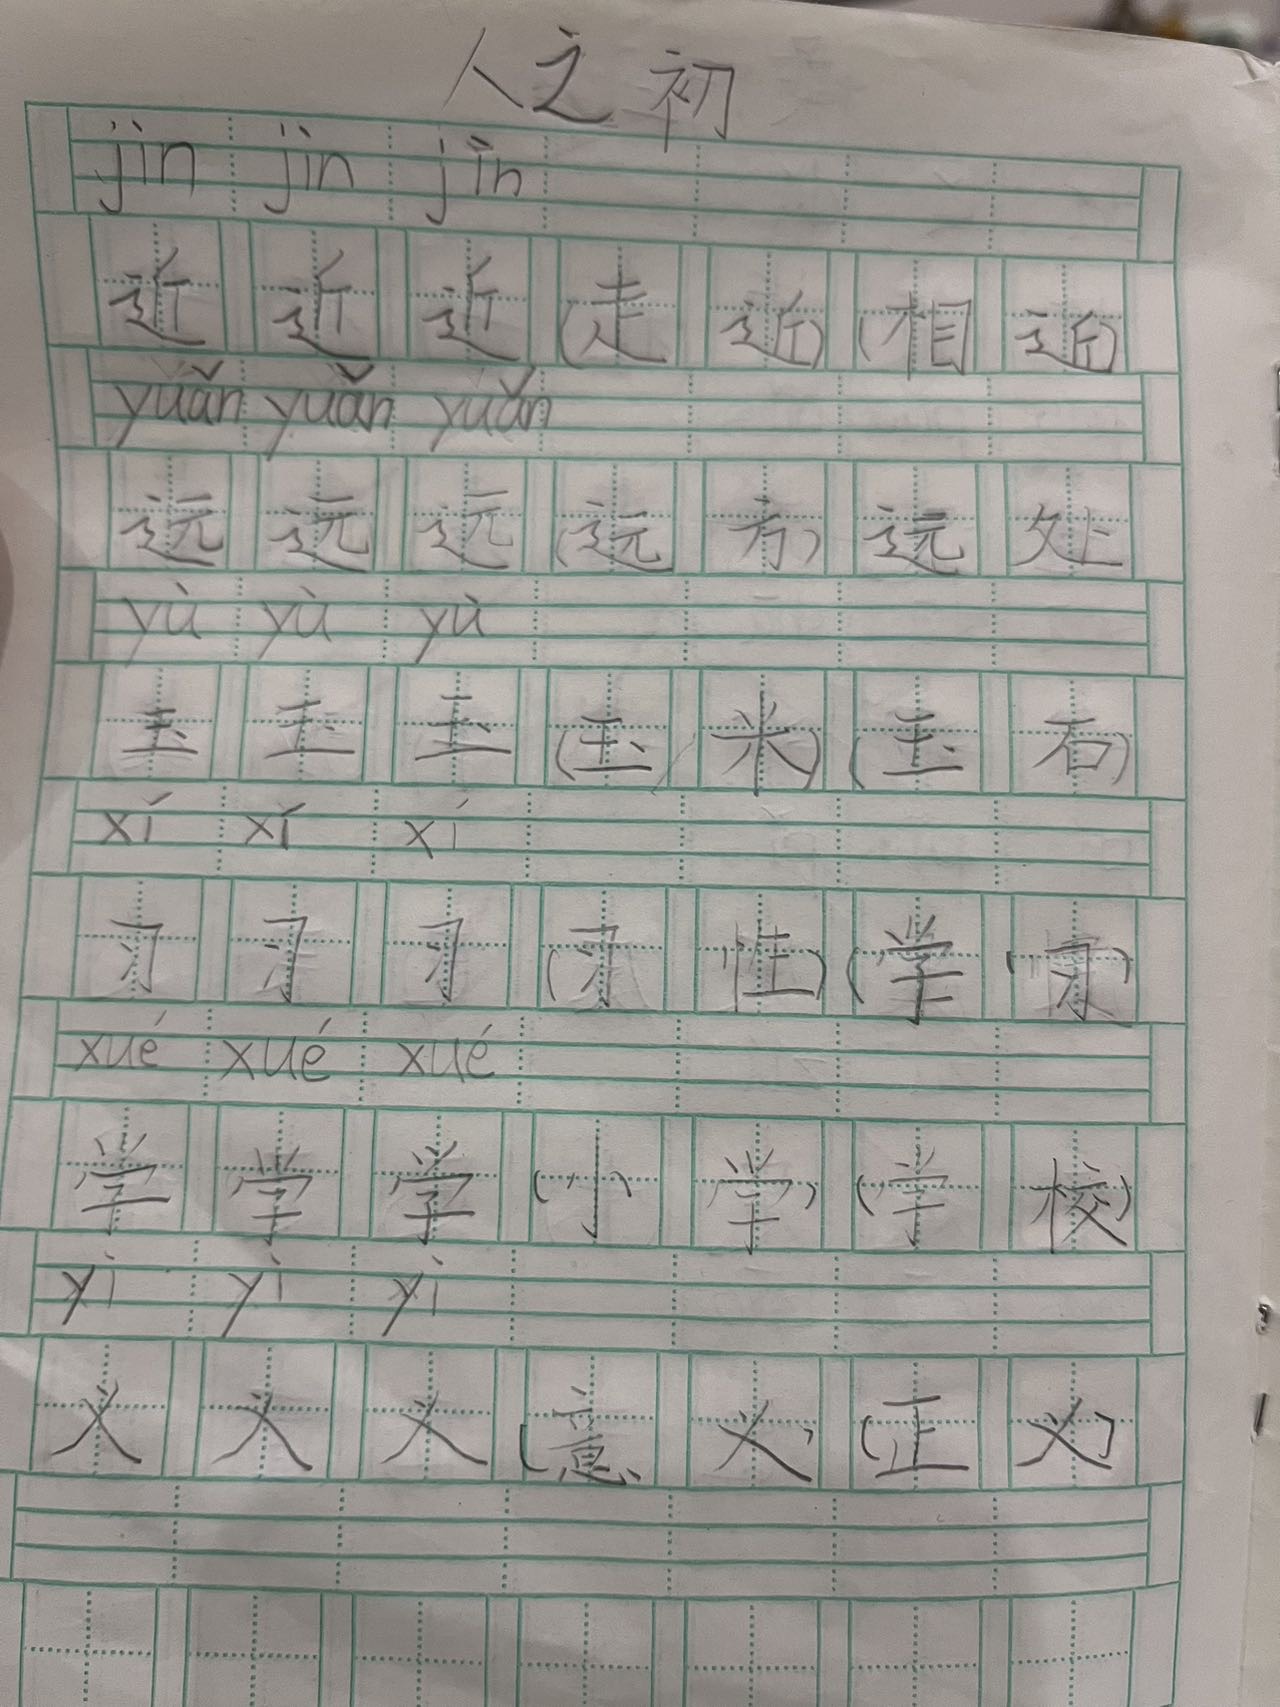 人之初
jìn jìn jìn
近 近 近 (走 近) (相 近)
yuǎn yuǎn yuǎn
远 远 远 (远 方) 远 处
yù yù yù
玉 玉 玉 (玉 米) (玉 石)
xí xí xí
习 习 习 (习 性) (学 习)
xué xué xué
学 学 学 (小 学) (学 校)
yì yì yì
义 义 义 (意 义) (正 义)